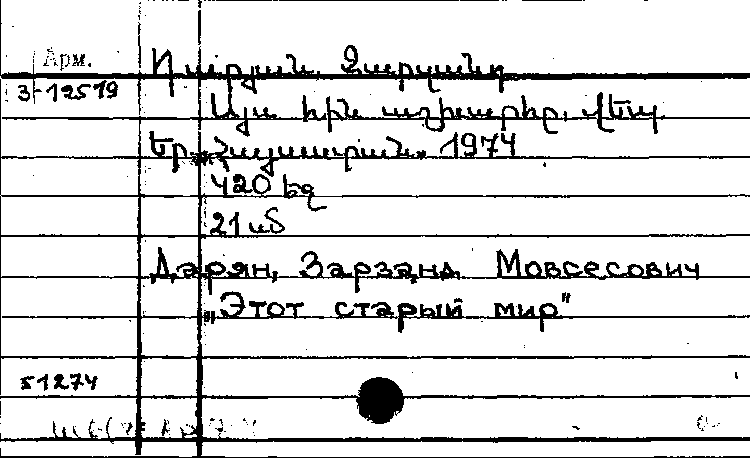 Арм.
Դարյան, Զարզանդ
3-12519
Այս հին աշխարհը. վեպ.
Եր. „Հայաստան“ 1974
420 էջ
21 սմ
Дарян, Зарзанд Мовсесович
„Этот старый мир"
51274